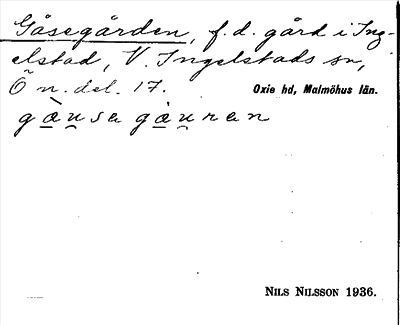 Gåsegården, f. d. gård i Ing-
elstad, V. Ingelstads sn,
Õ n. del. 17. Oxie hd, Malmöhus län.
gæ̀u̯sa gæ̀u̯ran
NILS NILSSON 1936.